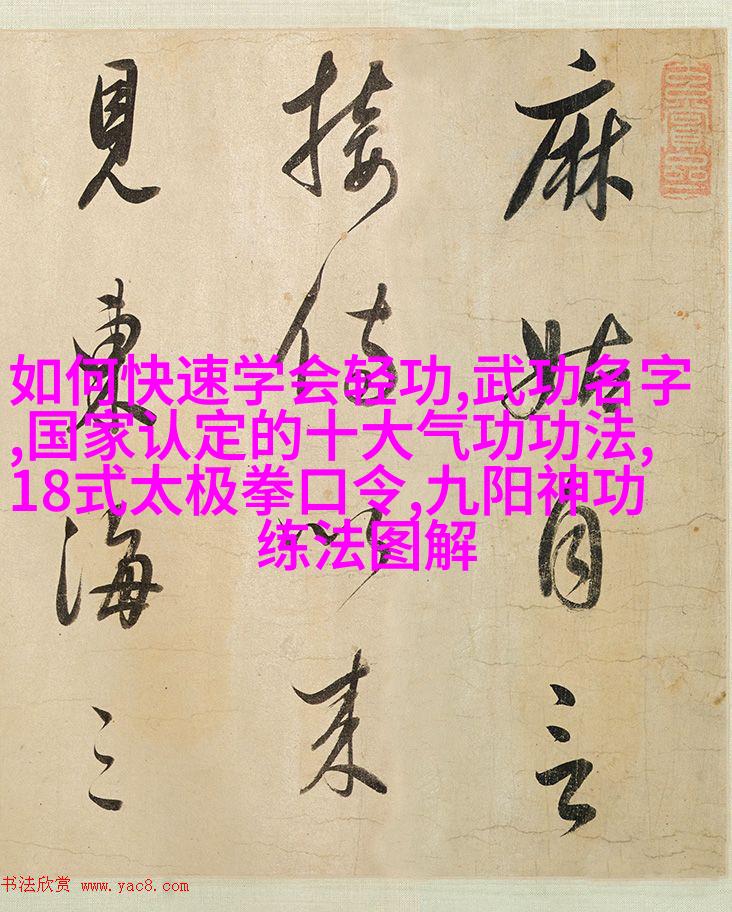 麻姑自言
接侍以来
見東海三
如何快速学会轻功,武功名字
,国家认定的十大气功功法,
18式太极拳口令,九阳神功
练法图解
书法欣赏 www.yac8.com